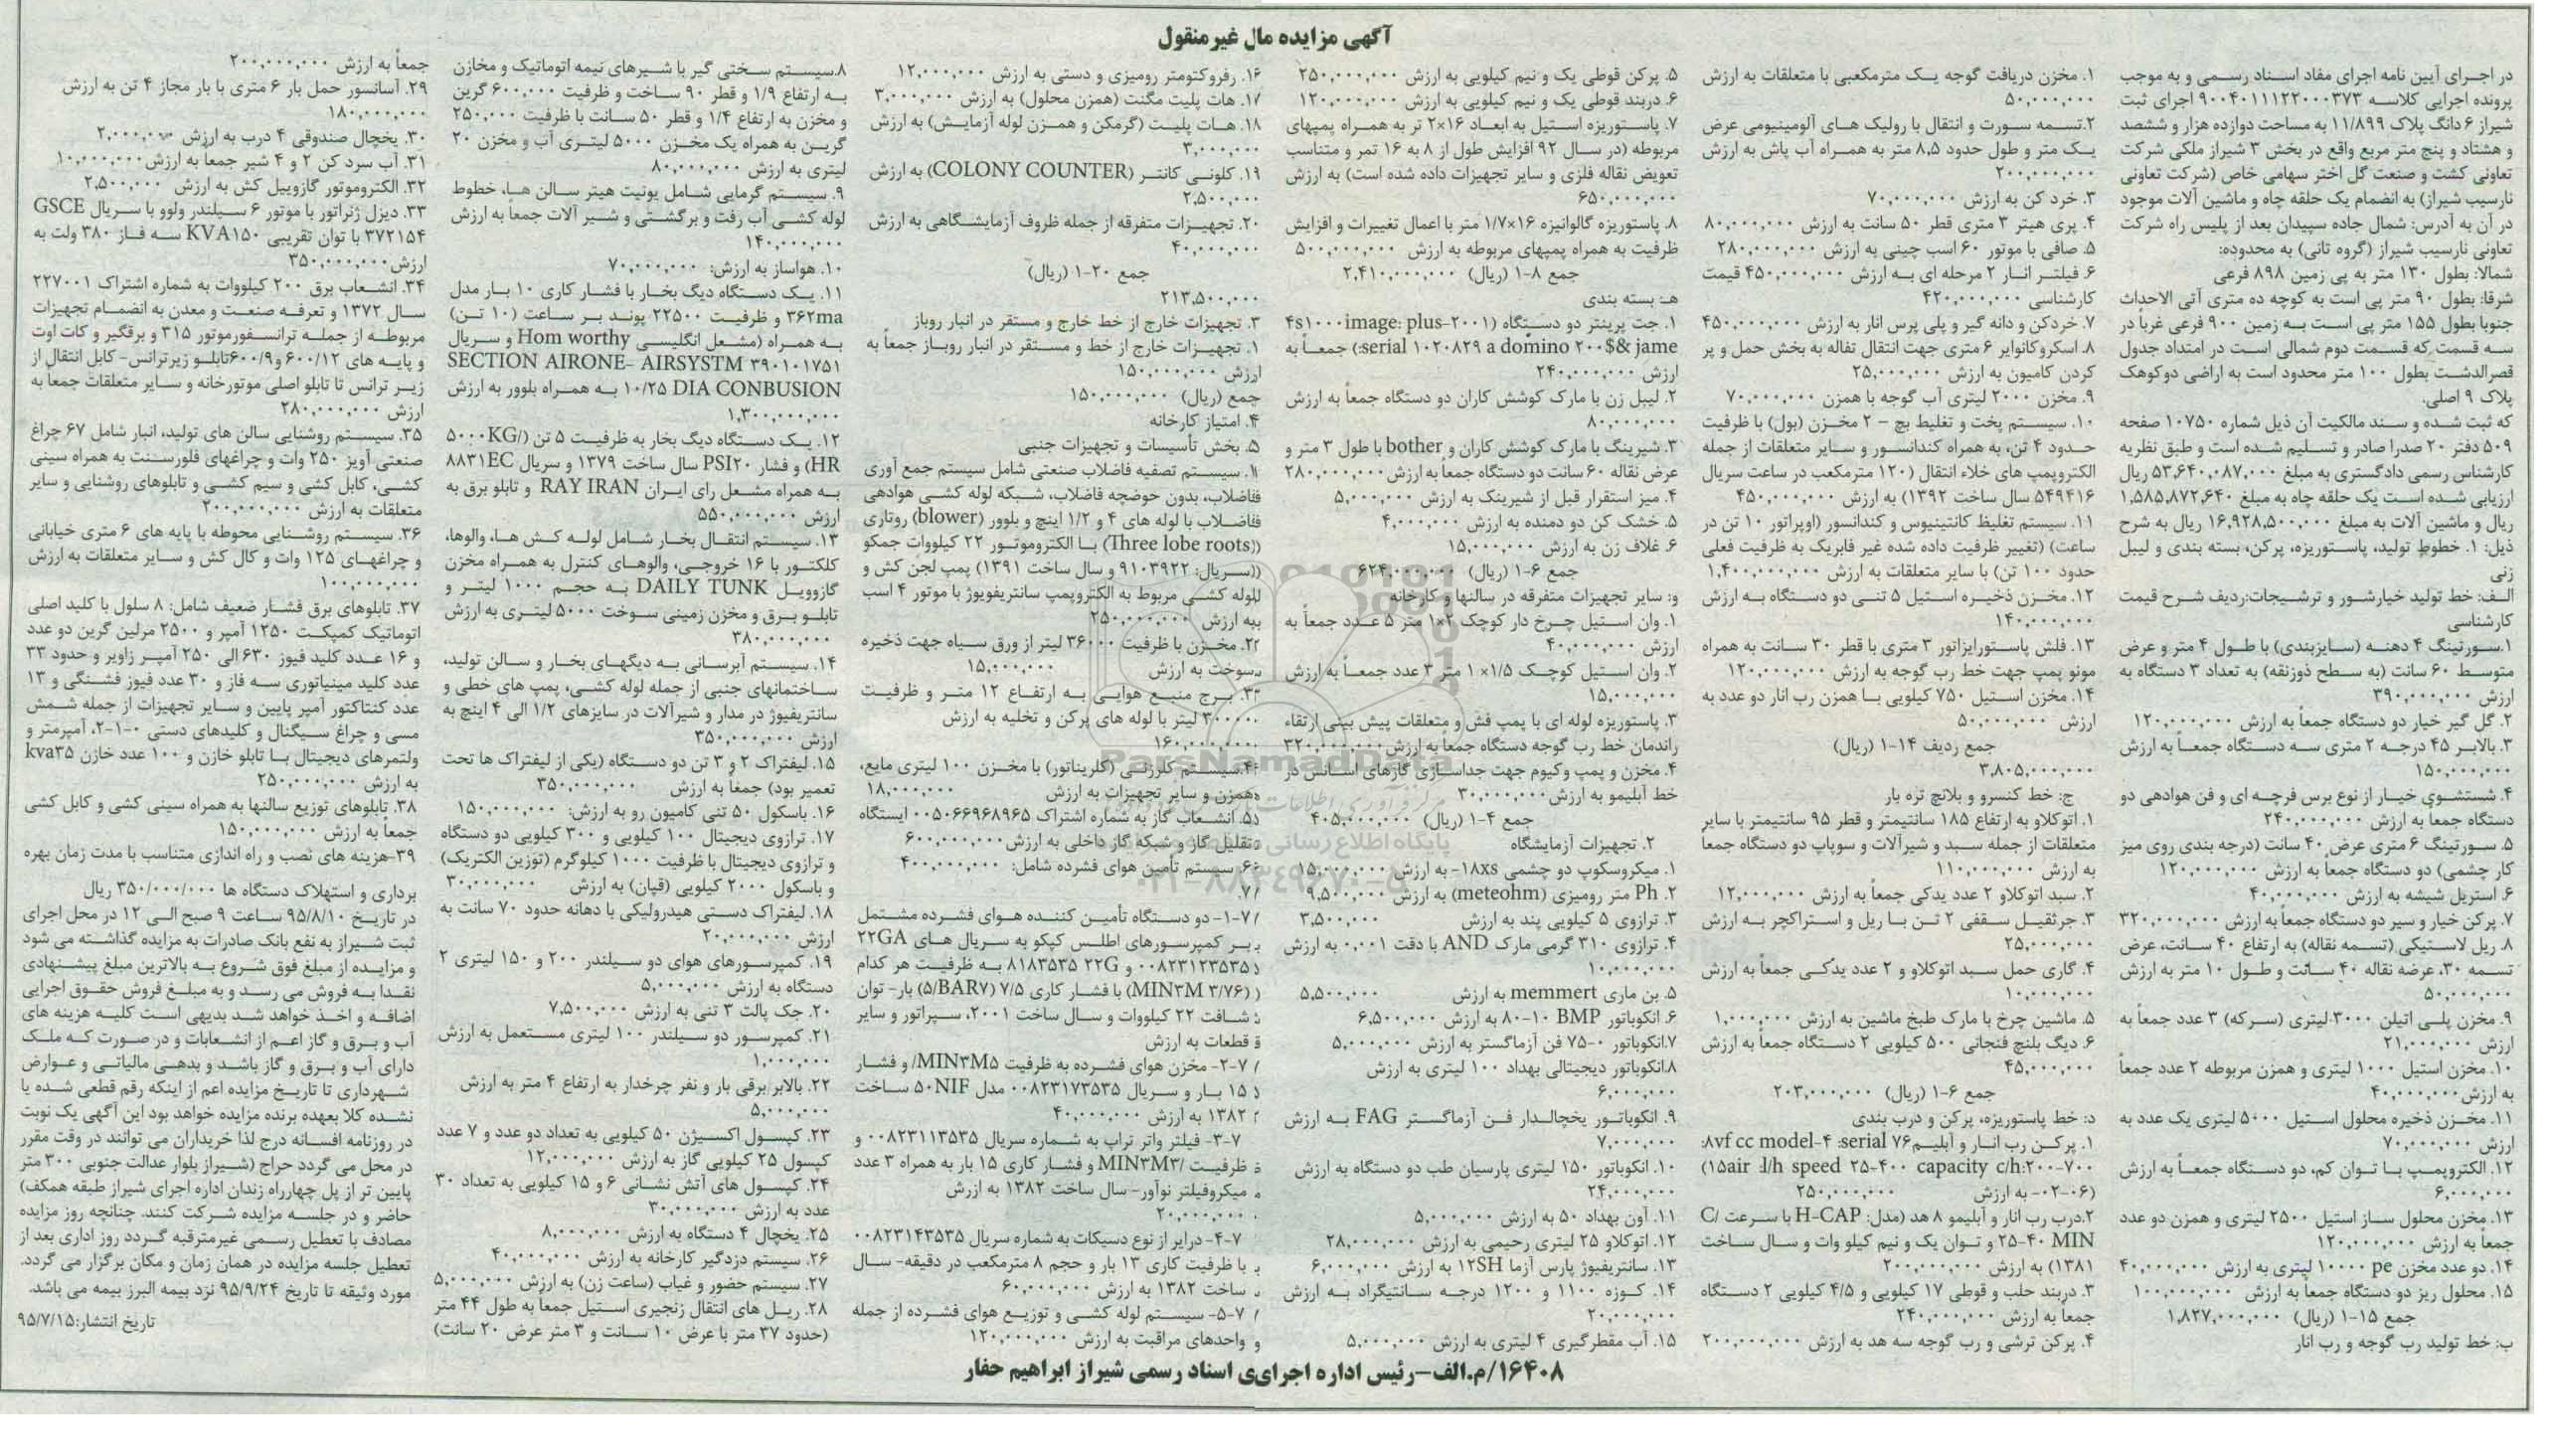 آگهی مزایده مال غیرمنقول
در اجرای آیین نامه اجرای مفاد اسناد رسمی و به موجب
پرونده اجرایی کلاسه ۹۰۰۴۰۱۱۱۲۲۰۰۰۳۷۳ اجرای ثبت
شیراز ۶ دانگ پلاک ۱۱/۸۹۹ به مساحت دوازده هزار و ششصد
و هشتاد و پنج متر مربع واقع در بخش ۳ شیراز ملکی شرکت
تعاونی کشت و صنعت گل اختر سهامی خاص (شرکت تعاونی
نارسیب شیراز) به انضمام یک حلقه چاه و ماشین آلات موجود
در آن به آدرس: شمال جاده سپیدان بعد از پلیس راه شرکت
تعاونی نارسیب شیراز (گروه تانی) به محدوده:
شمالا: بطول ۱۳۰ متر به پی زمین ۸۹۸ فرعی
شرقا: بطول ۹۰ متر پی است به کوچه ده متری آتی الاحداث
جنوبا بطول ۱۵۵ متر پی است به زمین ۹۰۰ فرعی غربا در
سه قسمت که قسمت دوم شمالی است در امتداد جدول
قصرالدشت بطول ۱۰۰ متر محدود است به اراضی دوکوهک
پلاک ۹ اصلی.
که ثبت شده و سند مالکیت آن ذیل شماره ۱۰۷۵۰ صفحه
۵۰۹ دفتر ۲۰ صدرا صادر و تسلیم شده است و طبق نظریه
کارشناس رسمی دادگستری به مبلغ ۵۳,۶۴۰,۰۸۷,۰۰۰ ریال
ارزیابی شده است یک حلقه چاه به مبلغ ۱,۵۸۵,۸۷۲,۶۴۰
ریال و ماشین آلات به مبلغ ۱۶,۹۲۸,۵۰۰,۰۰۰ ریال به شرح
ذیل: ۱. خطوط تولید، پاستوریزه، پرکن، بسته بندی و لیبل
زنی
الف: خط تولید خیارشور و ترشیجات:ردیف شرح قیمت
کارشناسی
۱.سورتینگ ۴ دهنه (سایزبندی) با طول ۴ متر و عرض
متوسط ۶۰ سانت (به سطح ذوزنقه) به تعداد ۳ دستگاه به
ارزش ۳۹۰,۰۰۰,۰۰۰
۲. گل گیر خیار دو دستگاه جمعاً به ارزش ۱۲۰,۰۰۰,۰۰۰
۳. بالابر ۴۵ درجه ۲ متری سه دستگاه جمعاً به ارزش
۱۵۰,۰۰۰,۰۰۰
۴. شستشوی خیار از نوع برس فرچه ای و فن هوادهی دو
دستگاه جمعاً به ارزش ۲۴۰,۰۰۰,۰۰۰
۵. سورتینگ ۶ متری عرض ۴۰ سانت (درجه بندی روی میز
کار چشمی) دو دستگاه جمعاً به ارزش ۱۲۰,۰۰۰,۰۰۰
۶. استریل شیشه به ارزش ۴۰,۰۰۰,۰۰۰
۷. پرکن خیار و سیر دو دستگاه جمعاً به ارزش ۳۲۰,۰۰۰,۰۰۰
۸. ریل لاستیکی (تسمه نقاله) به ارتفاع ۴۰ سانت، عرض
تسمه ۳۰، عرضه نقاله ۴۰ سانت و طول ۱۰ متر به ارزش
۵۰,۰۰۰,۰۰۰
۹. مخزن پلی اتیلن ۳۰۰۰ لیتری (سرکه) ۳ عدد جمعاً به
ارزش ۲۱,۰۰۰,۰۰۰
۱۰. مخزن استیل ۱۰۰۰ لیتری و همزن مربوطه ۲ عدد جمعاً
به ارزش ۴۰,۰۰۰,۰۰۰
۱۱. مخزن ذخیره محلول استیل ۵۰۰۰ لیتری یک عدد به
ارزش ۷۰,۰۰۰,۰۰۰
۱۲. الکتروپمپ با توان کم، دو دستگاه جمعاً به ارزش
۶,۰۰۰,۰۰۰
۱۳. مخزن محلول ساز استیل ۲۵۰۰ لیتری و همزن دو عدد
جمعاً به ارزش ۱۲۰,۰۰۰,۰۰۰
۱۴. دو عدد مخزن pe ۱۰۰۰۰ لیتری به ارزش ۴۰,۰۰۰,۰۰۰
۱۵. محلول ریز دو دستگاه جمعاً به ارزش ۱۰۰,۰۰۰,۰۰۰
جمع ۱۵-۱ (ریال) ۱,۸۲۷,۰۰۰,۰۰۰
ب: خط تولید رب گوجه و رب انار
۱. مخزن دریافت گوجه یک مترمکعبی با متعلقات به ارزش
۵۰,۰۰۰,۰۰۰
۲.تسمه سورت و انتقال با رولیک های آلومینیومی عرض
یک متر و طول حدود ۸,۵ متر به همراه آب پاش به ارزش
۲۰۰,۰۰۰,۰۰۰
۳. خرد کن به ارزش ۷۰,۰۰۰,۰۰۰
۴. پری هیتر ۳ متری قطر ۵۰ سانت به ارزش ۸۰,۰۰۰,۰۰۰
۵. صافی با موتور ۶۰ اسب چینی به ارزش ۲۸۰,۰۰۰,۰۰۰
۶. فیلتر انار ۲ مرحله ای به ارزش ۴۵۰,۰۰۰,۰۰۰ قیمت
کارشناسی ۴۲۰,۰۰۰,۰۰۰
۷. خردکن و دانه گیر و پلی پرس انار به ارزش ۴۵۰,۰۰۰,۰۰۰
۸. اسکروکانوایر ۶ متری جهت انتقال تفاله به بخش حمل و پر
کردن کامیون به ارزش ۲۵,۰۰۰,۰۰۰
۹. مخزن ۲۰۰۰ لیتری آب گوجه با همزن ۷۰,۰۰۰,۰۰۰
۱۰. سیستم پخت و تغلیظ بچ – ۲ مخزن (بول) با ظرفیت
حدود ۴ تن، به همراه کندانسور و سایر متعلقات از جمله
الکتروپمپ های خلاء انتقال (۱۲۰ مترمکعب در ساعت سریال
۵۴۹۴۱۶ سال ساخت ۱۳۹۲) به ارزش ۴۵۰,۰۰۰,۰۰۰
۱۱. سیستم تغلیظ کانتینیوس و کندانسور (اوپراتور ۱۰ تن در
ساعت) (تغییر ظرفیت داده شده غیر فابریک به ظرفیت فعلی
حدود ۱۰۰ تن) با سایر متعلقات به ارزش ۱,۴۰۰,۰۰۰,۰۰۰
۱۲. مخزن ذخیره استیل ۵ تنی دو دستگاه به ارزش
۱۴۰,۰۰۰,۰۰۰
۱۳. فلش پاستورایزاتور ۳ متری با قطر ۳۰ سانت به همراه
مونو پمپ جهت خط رب گوجه به ارزش ۱۲۰,۰۰۰,۰۰۰
۱۴. مخزن استیل ۷۵۰ کیلویی با همزن رب انار دو عدد به
ارزش ۵۰,۰۰۰,۰۰۰
جمع ردیف ۱۴-۱ (ریال)
۳,۸۰۵,۰۰۰,۰۰۰
ج: خط کنسرو و بلانچ تره بار
۱. اتوکلاو به ارتفاع ۱۸۵ سانتیمتر و قطر ۹۵ سانتیمتر با سایر
متعلقات از جمله سبد و شیرآلات و سوپاپ دو دستگاه جمعاً
به ارزش ۱۱۰,۰۰۰,۰۰۰
۲. سبد اتوکلاو ۲ عدد یدکی جمعاً به ارزش ۱۲,۰۰۰,۰۰۰
۳. جرثقیل سقفی ۲ تن با ریل و استراکچر به ارزش
۲۵,۰۰۰,۰۰۰
۴. گاری حمل سبد اتوکلاو و ۲ عدد یدکی جمعاً به ارزش
۱۰,۰۰۰,۰۰۰
۵. ماشین چرخ با مارک طبخ ماشین به ارزش ۱,۰۰۰,۰۰۰
۶. دیگ بلنچ فنجانی ۵۰۰ کیلویی ۲ دستگاه جمعاً به ارزش
۴۵,۰۰۰,۰۰۰
جمع ۶-۱ (ریال) ۲۰۳,۰۰۰,۰۰۰
د: خط پاستوریزه، پرکن و درب بندی
۱. پرکن رب انار و آبلیم۷۶ serial :۸vf cc model-۴:
(۱۵air l/h speed ۲۵-۴۰۰ capacity c/h:۲۰۰-۷۰۰
(۰۲-۰۶- به ارزش ۲۵۰,۰۰۰,۰۰۰
۲.درب رب انار و آبلیمو ۸ هد (مدل: H-CAP با سرعت C/
MIN ۲۵-۴۰ و توان یک و نیم کیلو وات و سال ساخت
۱۳۸۱) به ارزش ۲۰۰,۰۰۰,۰۰۰
۳. دربند حلب و قوطی ۱۷ کیلویی و ۴/۵ کیلویی ۲ دستگاه
جمعاً به ارزش ۲۴۰,۰۰۰,۰۰۰
۴. پرکن ترشی و رب گوجه سه هد به ارزش ۲۰۰,۰۰۰,۰۰۰
۵. پرکن قوطی یک و نیم کیلویی به ارزش ۲۵۰,۰۰۰,۰۰۰
۶. دربند قوطی یک و نیم کیلویی به ارزش ۱۲۰,۰۰۰,۰۰۰
۷. پاستوریزه استیل به ابعاد ۱۶×۲ تر به همراه پمپهای
مربوطه (در سال ۹۲ افزایش طول از ۸ به ۱۶ تمر و متناسب
تعویض نقاله فلزی و سایر تجهیزات داده شده است) به ارزش
۶۵۰,۰۰۰,۰۰۰
۸. پاستوریزه گالوانیزه ۱۶×۱/۷ متر با اعمال تغییرات و افزایش
ظرفیت به همراه پمپهای مربوطه به ارزش ۵۰۰,۰۰۰,۰۰۰
جمع ۸-۱ (ریال) ۲,۴۱۰,۰۰۰,۰۰۰
هـ: بسته بندی
۱. جت پرینتر دو دستگاه (۲۰۰۱-image: plus ۴s۱۰۰۰
serial ۱۰۲۰۸۲۹ a domino ۲۰۰$& jame:) جمعاً به
ارزش ۲۴۰,۰۰۰,۰۰۰
۲. لیبل زن با مارک کوشش کاران دو دستگاه جمعاً به ارزش
۸۰,۰۰۰,۰۰۰
۳. شیرینگ با مارک کوشش کاران و bother با طول ۳ متر و
عرض نقاله ۶۰ سانت دو دستگاه جمعاً به ارزش ۲۸۰,۰۰۰,۰۰۰
۴. میز استقرار قبل از شیرینک به ارزش ۵,۰۰۰,۰۰۰
۵. خشک کن دو دمنده به ارزش ۴,۰۰۰,۰۰۰
۶. غلاف زن به ارزش ۱۵,۰۰۰,۰۰۰
جمع ۶-۱ (ریال) ۶۲۴,۰۰۰,۰۰۰
و: سایر تجهیزات متفرقه در سالنها و کارخانه
۱. وان استیل چرخ دار کوچک ۲×۱ متر ۵ عدد جمعاً به
ارزش ۴۰,۰۰۰,۰۰۰
۲. وان استیل کوچک ۱/۵×۱ متر ۳ عدد جمعاً به ارزش
۱۵,۰۰۰,۰۰۰
۳. پاستوریزه لوله ای با پمپ فش و متعلقات پیش بینی ارتقاء
راندمان خط رب گوجه دستگاه جمعاً به ارزش ۳۲۰,۰۰۰,۰۰۰
۴. مخزن و پمپ وکیوم جهت جداسازی گازهای اسانس در
خط آبلیمو به ارزش ۳۰,۰۰۰,۰۰۰
جمع ۴-۱ (ریال) ۴۰۵,۰۰۰,۰۰۰
۲. تجهیزات آزمایشگاه
۱. میکروسکوپ دو چشمی ۱۸xs- به ارزش ۱۵,۰۰۰,۰۰۰
۲. Ph متر رومیزی (meteohm) به ارزش ۹,۵۰۰,۰۰۰
۳. ترازوی ۵ کیلویی پند به ارزش ۳,۵۰۰,۰۰۰
۴. ترازوی ۳۱۰ گرمی مارک AND با دقت ۰,۰۰۱ به ارزش
۱۰,۰۰۰,۰۰۰
۵. بن ماری memmert به ارزش ۵,۵۰۰,۰۰۰
۶. انکوباتور BMP ۸۰-۱۰ به ارزش ۶,۵۰۰,۰۰۰
۷.انکوباتور ۰-۷۵ فن آزماگستر به ارزش ۵,۰۰۰,۰۰۰
۸.انکوباتور دیجیتالی بهداد ۱۰۰ لیتری به ارزش
۶,۰۰۰,۰۰۰
۹. انکوباتور یخچالدار فن آزماگستر FAG به ارزش
۷,۰۰۰,۰۰۰
۱۰. انکوباتور ۱۵۰ لیتری پارسیان طب دو دستگاه به ارزش
۲۴,۰۰۰,۰۰۰
۱۱. آون بهداد ۵۰ به ارزش ۵,۰۰۰,۰۰۰
۱۲. اتوکلاو ۲۵ لیتری رحیمی به ارزش ۲۸,۰۰۰,۰۰۰
۱۳. سانتریفیوژ پارس آزما ۱۲SH به ارزش ۶,۰۰۰,۰۰۰
۱۴. کوزه ۱۱۰۰ و ۱۲۰۰ درجه سانتیگراد به ارزش
۲۰,۰۰۰,۰۰۰
۱۵. آب مقطرگیری ۴ لیتری به ارزش ۵,۰۰۰,۰۰۰
۱۶. رفروکتومتر رومیزی و دستی به ارزش ۱۲,۰۰۰,۰۰۰
۱۷. هات پلیت مگنت (همزن محلول) به ارزش ۳,۰۰۰,۰۰۰
۱۸. هات پلیت (گرمکن و همزن لوله آزمایش) به ارزش
۳,۰۰۰,۰۰۰
۱۹. کلونی کانتر (COLONY COUNTER) به ارزش
۲,۵۰۰,۰۰۰
۲۰. تجهیزات متفرقه از جمله ظروف آزمایشگاهی به ارزش
۴۰,۰۰۰,۰۰۰
جمع ۲۰-۱ (ریال)
۲۱۳,۵۰۰,۰۰۰
۳. تجهیزات خارج از خط خارج و مستقر در انبار روباز
۱. تجهیزات خارج از خط و مستقر در انبار روباز جمعاً به
ارزش ۱۵۰,۰۰۰,۰۰۰
جمع (ریال) ۱۵۰,۰۰۰,۰۰۰
۴. امتیاز کارخانه
۵. بخش تأسیسات و تجهیزات جنبی
۱. سیستم تصفیه فاضلاب صنعتی شامل سیستم جمع آوری
فاضلاب، بدون حوضچه فاضلاب، شبکه لوله کشی هوادهی
فاضلاب با لوله های ۴ و ۱/۲ اینچ و بلوور (blower) روتاری
(Three lobe roots) با الکتروموتور ۲۲ کیلووات جمکو
(سریال: ۹۱۰۳۹۲۲ و سال ساخت ۱۳۹۱) پمپ لجن کش و
لوله کشی مربوط به الکتروپمپ سانتریفویوژ با موتور ۴ اسب
به ارزش ۲۵۰,۰۰۰,۰۰۰
۲. مخزن با ظرفیت ۳۶۰۰۰ لیتر از ورق سیاه جهت ذخیره
سوخت به ارزش ۱۵,۰۰۰,۰۰۰
۳. برج منبع هوایی به ارتفاع ۱۲ متر و ظرفیت
۳۰۰۰۰۰ لیتر با لوله های پرکن و تخلیه به ارزش
۱۶۰,۰۰۰,۰۰۰
۴.سیستم کلرزنی (کلریناتور) با مخزن ۱۰۰ لیتری مایع،
همزن و سایر تجهیزات به ارزش ۱۸,۰۰۰,۰۰۰
۵. انشعاب گاز به شماره اشتراک ۰۰۵۰۶۶۹۶۸۹۶۵ ایستگاه
تقلیل گاز و شبکه گاز داخلی به ارزش ۶۰۰,۰۰۰,۰۰۰
۶. سیستم تأمین هوای فشرده شامل: ۴۰۰,۰۰۰,۰۰۰
۷.
۷-۱- دو دستگاه تأمین کننده هوای فشرده مشتمل
بر کمپرسورهای اطلس کپکو به سریال های ۲۲GA
۰۰۸۲۳۱۲۳۵۳۵ و ۲۲G ۸۱۸۳۵۳۵ به ظرفیت هر کدام
(MIN۳M ۳/۷۶) با فشار کاری ۷/۵ (۵/BAR۷) بار- توان
شافت ۲۲ کیلووات و سال ساخت ۲۰۰۱، سپراتور و سایر
قطعات به ارزش
۷-۲- مخزن هوای فشرده به ظرفیت MIN۳M۵/ و فشار
۱۵ بار و سریال ۰۰۸۲۳۱۷۳۵۳۵ مدل ۵۰NIF ساخت
۱۳۸۲ به ارزش ۴۰,۰۰۰,۰۰۰
۷-۳- فیلتر واتر تراپ به شماره سریال ۰۰۸۲۳۱۱۳۵۳۵ و
ظرفیت MIN۳M۳/ و فشار کاری ۱۵ بار به همراه ۳ عدد
میکروفیلتر نوآور- سال ساخت ۱۳۸۲ به ارزش
۲۰,۰۰۰,۰۰۰
۷-۴- درایر از نوع دسیکات به شماره سریال ۰۰۸۲۳۱۴۳۵۳۵
با ظرفیت کاری ۱۳ بار و حجم ۸ مترمکعب در دقیقه- سال
ساخت ۱۳۸۲ به ارزش ۶۰,۰۰۰,۰۰۰
۷-۵- سیستم لوله کشی و توزیع هوای فشرده از جمله
واحدهای مراقبت به ارزش ۱۲۰,۰۰۰,۰۰۰
۸.سیستم سختی گیر با شیرهای نیمه اتوماتیک و مخازن
به ارتفاع ۱/۹ و قطر ۹۰ ساخت و ظرفیت ۶۰۰,۰۰۰ گرین
و مخزن به ارتفاع ۱/۴ و قطر ۵۰ سانت با ظرفیت ۲۵۰,۰۰۰
گرین به همراه یک مخزن ۵۰۰۰ لیتری آب و مخزن ۲۰
لیتری به ارزش ۸۰,۰۰۰,۰۰۰
۹. سیستم گرمایی شامل یونیت هیتر سالن ها، خطوط
لوله کشی آب رفت و برگشتی و شیر آلات جمعاً به ارزش
۱۴۰,۰۰۰,۰۰۰
۱۰. هواساز به ارزش: ۷۰,۰۰۰,۰۰۰
۱۱. یک دستگاه دیگ بخار با فشار کاری ۱۰ بار مدل
۳۶۲ma و ظرفیت ۲۲۵۰۰ پوند بر ساعت (۱۰ تن)
به همراه (مشعل انگلیسی Hom worthy و سریال
SECTION AIRONE- AIRSYSTM ۳۹۰۱۰۱۷۵۱
۱۰/۲۵ DIA CONBUSION به همراه بلوور به ارزش
۱,۳۰۰,۰۰۰,۰۰۰
۱۲. یک دستگاه دیگ بخار به ظرفیت ۵ تن (۵۰۰۰KG/
HR) و فشار PSI۲۰ سال ساخت ۱۳۷۹ و سریال ۸۸۳۱EC
به همراه مشعل رای ایران RAY IRAN و تابلو برق به
ارزش ۵۵۰,۰۰۰,۰۰۰
۱۳. سیستم انتقال بخار شامل لوله کش ها، والوها،
کلکتور با ۱۶ خروجی، والوهای کنترل به همراه مخزن
گازوویل DAILY TUNK به حجم ۱۰۰۰ لیتر و
تابلو برق و مخزن زمینی سوخت ۵۰۰۰ لیتری به ارزش
۳۸۰,۰۰۰,۰۰۰
۱۴. سیستم آبرسانی به دیگهای بخار و سالن تولید،
ساختمانهای جنبی از جمله لوله کشی، پمپ های خطی و
سانتریفیوژ در مدار و شیرآلات در سایزهای ۱/۲ الی ۴ اینچ به
ارزش ۳۵۰,۰۰۰,۰۰۰
۱۵. لیفتراک ۲ و ۳ تن دو دستگاه (یکی از لیفتراک ها تحت
تعمیر بود) جمعاً به ارزش ۳۵۰,۰۰۰,۰۰۰
۱۶. باسکول ۵۰ تنی کامیون رو به ارزش: ۱۵۰,۰۰۰,۰۰۰
۱۷. ترازوی دیجیتال ۱۰۰ کیلویی و ۳۰۰ کیلویی دو دستگاه
و ترازوی دیجیتال با ظرفیت ۱۰۰۰ کیلوگرم (توزین الکتریک)
و باسکول ۲۰۰۰ کیلویی (قپان) به ارزش ۳۰,۰۰۰,۰۰۰
۱۸. لیفتراک دستی هیدرولیکی با دهانه حدود ۷۰ سانت به
ارزش ۲۰,۰۰۰,۰۰۰
۱۹. کمپرسورهای هوای دو سیلندر ۲۰۰ و ۱۵۰ لیتری ۲
دستگاه به ارزش ۵,۰۰۰,۰۰۰
۲۰. جک پالت ۳ تنی به ارزش ۷,۵۰۰,۰۰۰
۲۱. کمپرسور دو سیلندر ۱۰۰ لیتری مستعمل به ارزش
۱,۰۰۰,۰۰۰
۲۲. بالابر/برقی بار و نفر چرخدار به ارتفاع ۴ متر به ارزش
۵,۰۰۰,۰۰۰
۲۳. کپسول اکسیژن ۵۰ کیلویی به تعداد دو عدد و ۷ عدد
کپسول ۲۵ کیلویی گاز به ارزش ۱۲,۰۰۰,۰۰۰
۲۴. کپسول های آتش نشانی ۶ و ۱۵ کیلویی به تعداد ۳۰
عدد به ارزش ۳۰,۰۰۰,۰۰۰
۲۵. یخچال ۴ دستگاه به ارزش ۸,۰۰۰,۰۰۰
۲۶. سیستم دزدگیر کارخانه به ارزش ۴۰,۰۰۰,۰۰۰
۲۷. سیستم حضور و غیاب (ساعت زن) به ارزش ۵,۰۰۰,۰۰۰
۲۸. ریل های انتقال زنجیری استیل جمعاً به طول ۴۴ متر
(حدود ۳۷ متر با عرض ۱۰ سانت و ۳ متر عرض ۲۰ سانت)
جمعاً به ارزش ۲۰۰,۰۰۰,۰۰۰
۲۹. آسانسور حمل بار ۶ متری با بار مجاز ۴ تن به ارزش
۱۸۰,۰۰۰,۰۰۰
۳۰. یخچال صندوقی ۴ درب به ارزش ۲,۰۰۰,۰۰۰
۳۱. آب سرد کن ۲ و ۴ شیر جمعاً به ارزش ۱۰,۰۰۰,۰۰۰
۳۲. الکتروموتور گازوییل کش به ارزش ۲,۵۰۰,۰۰۰
۳۳. دیزل ژنراتور با موتور ۶ سیلندر ولوو با سریال GSCE
۳۷۲۱۵۴ با توان تقریبی KVA۱۵۰ سه فاز ۳۸۰ ولت به
ارزش ۳۵۰,۰۰۰,۰۰۰
۳۴. انشعاب برق ۲۰۰ کیلووات به شماره اشتراک ۲۲۷۰۰۱
سال ۱۳۷۲ و تعرفه صنعت و معدن به انضمام تجهیزات
مربوطه از جمله ترانسفورموتور ۳۱۵ و برقگیر و کات اوت
و پایه های ۶۰۰/۱۲ و۶۰۰/۹تابلو زیرترانس- کابل انتقال از
زیر ترانس تا تابلو اصلی موتورخانه و سایر متعلقات جمعاً به
ارزش ۲۸۰,۰۰۰,۰۰۰
۳۵. سیستم روشنایی سالن های تولید، انبار شامل ۶۷ چراغ
صنعتی آویز ۲۵۰ وات و چراغهای فلورسنت به همراه سینی
کشی، کابل کشی و سیم کشی و تابلوهای روشنایی و سایر
متعلقات به ارزش ۲۰۰,۰۰۰,۰۰۰
۳۶. سیستم روشنایی محوطه با پایه های ۶ متری خیابانی
و چراغهای ۱۲۵ وات و کال کش و سایر متعلقات به ارزش
۱۰۰,۰۰۰,۰۰۰
۳۷. تابلوهای برق فشار ضعیف شامل: ۸ سلول با کلید اصلی
اتوماتیک کمپکت ۱۲۵۰ آمپر و ۲۵۰۰ مرلین گرین دو عدد
و ۱۶ عدد کلید فیوز ۶۳۰ الی ۲۵۰ آمپر زاویر و حدود ۳۳
عدد کلید مینیاتوری سه فاز و ۳۰ عدد فیوز فشنگی و ۱۳
عدد کنتاکتور آمپر پایین و سایر تجهیزات از جمله شمش
مسی و چراغ سیگنال و کلیدهای دستی ۰-۱-۲، آمپرمتر و
ولتمرهای دیجیتال با تابلو خازن و ۱۰۰ عدد خازن kva۳۵
به ارزش ۲۵۰,۰۰۰,۰۰۰
۳۸. تابلوهای توزیع سالنها به همراه سینی کشی و کابل کشی
جمعاً به ارزش ۱۵۰,۰۰۰,۰۰۰
۳۹-هزینه های نصب و راه اندازی متناسب با مدت زمان بهره
برداری و استهلاک دستگاه ها ۳۵۰/۰۰۰/۰۰۰ ریال
در تاریخ ۹۵/۸/۱۰ ساعت ۹ صبح الی ۱۲ در محل اجرای
ثبت شیراز به نفع بانک صادرات به مزایده گذاشته می شود
و مزایده از مبلغ فوق شروع به بالاترین مبلغ پیشنهادی
نقدا به فروش می رسد و به مبلغ فروش حقوق اجرایی
اضافه و اخذ خواهد شد بدیهی است کلیه هزینه های
آب و برق و گاز اعم از انشعابات و در صورت که ملک
دارای آب و برق و گاز باشد و بدهی مالیاتی و عوارض
شهرداری تا تاریخ مزایده اعم از اینکه رقم قطعی شده یا
نشده کلا بعهده برنده مزایده خواهد بود این آگهی یک نوبت
در روزنامه افسانه درج لذا خریداران می توانند در وقت مقرر
در محل می گردد حراج (شیراز بلوار عدالت جنوبی ۳۰۰ متر
پایین تر از پل چهارراه زندان اداره اجرای شیراز طبقه همکف)
حاضر و در جلسه مزایده شرکت کنند. چنانچه روز مزایده
مصادف با تعطیل رسمی غیرمترقبه گردد روز اداری بعد از
تعطیل جلسه مزایده در همان زمان و مکان برگزار می گردد.
مورد وثیقه تا تاریخ ۹۵/۹/۲۴ نزد بیمه البرز بیمه می باشد.
تاریخ انتشار:۹۵/۷/۱۵
۱۶۴۰۸/م.الف-رئیس اداره اجرای اسناد رسمی شیراز ابراهیم حفار
ParsNamadData
پایگاه اطلاع رسانی